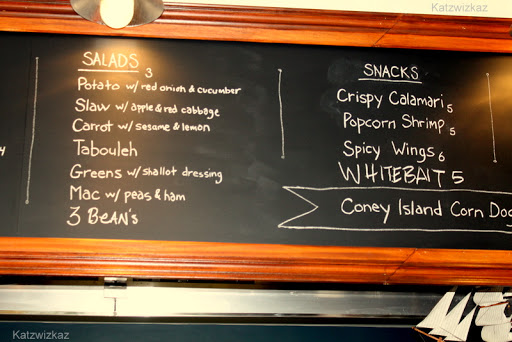 Katzwizkaz
SALADS 3
Potato w/ red onion & cucumber
Slaw w/ apple & red cabbage
Carrot w/ sesame & lemon
Tabouleh
Greens w/ shallot dressing
Mac w/ peas & ham
3 BEAN's
SNACKS
Crispy Calamari 5
Popcorn Shrimp 5
Spicy Wings 6
WHITEBAIT 5
Coney Island Corn Dog
4
Katzwizkaz